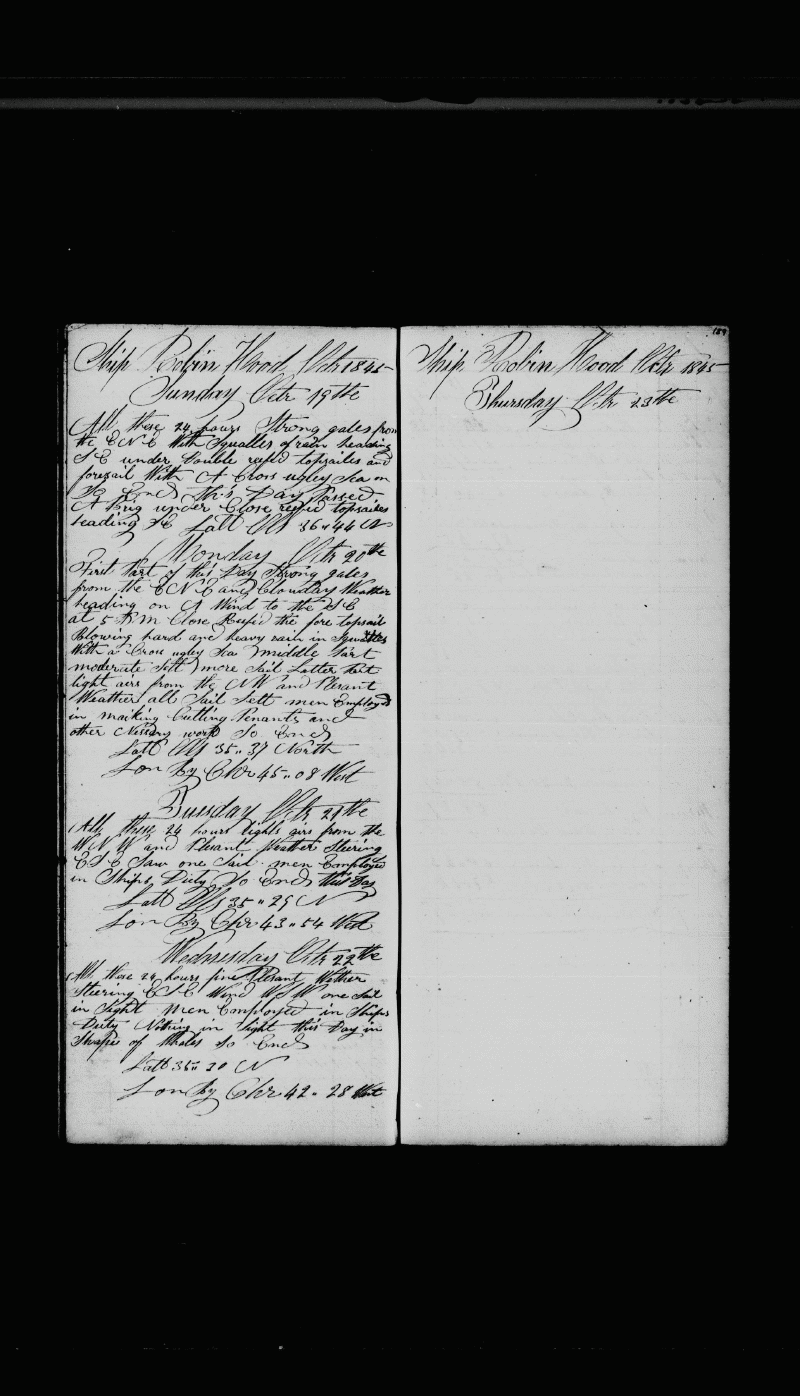 Ship Robin Hood Octr 1845
Sunday Octr 19the
All these 24 hours Strong gales from
the ENE With Squalles of rain heading
SE under Double reefd topsailes and
foresail With A Cross ugley Sea on
So Ends this Day Passed
A Brig under Close reefed topsailes
heading SE Latt Obs 36 " 44 N
Monday Octr 20the
First Part of this Day Strong gales
from the ENE and Clouday Weather
heading on A Wind to the SE
at 5 P.M Close Reefd the fore topsail
Blowing hard and heavy rain in Squalles
With a Cross ugley Sea middle Part
moderate Sett more Sail Latter Part
light airs from the NW and Plesant
Weather all Sail Sett men Employed
in making Cutting Penants and
other Nessary work So Ends
Latt Obs 35 " 37 North
Lon By Chr 45 " 08 West
Tuesday Octr 21the
All these 24 hours lights airs from the
WNW and Plesant Weather Steering
ESE Saw one Sail men Employed
in Ships Duty So Ends this Day
Latt Obs 35 " 29 N
Lon By Chr 43 " 54 West
Wednesday Octr 22the
All these 24 hours fine Plesant Wether
Steering ESE Wind WSW one Sail
in Sight men Employed in Ships
Duty Nothing in Sight this Day in
Shape of Whales So Ends
Latt 35 " 30 N
Lon By Chr 42 " 28 West
189
Ship Robin Hood Octr 1845
Thursday Octr 23the